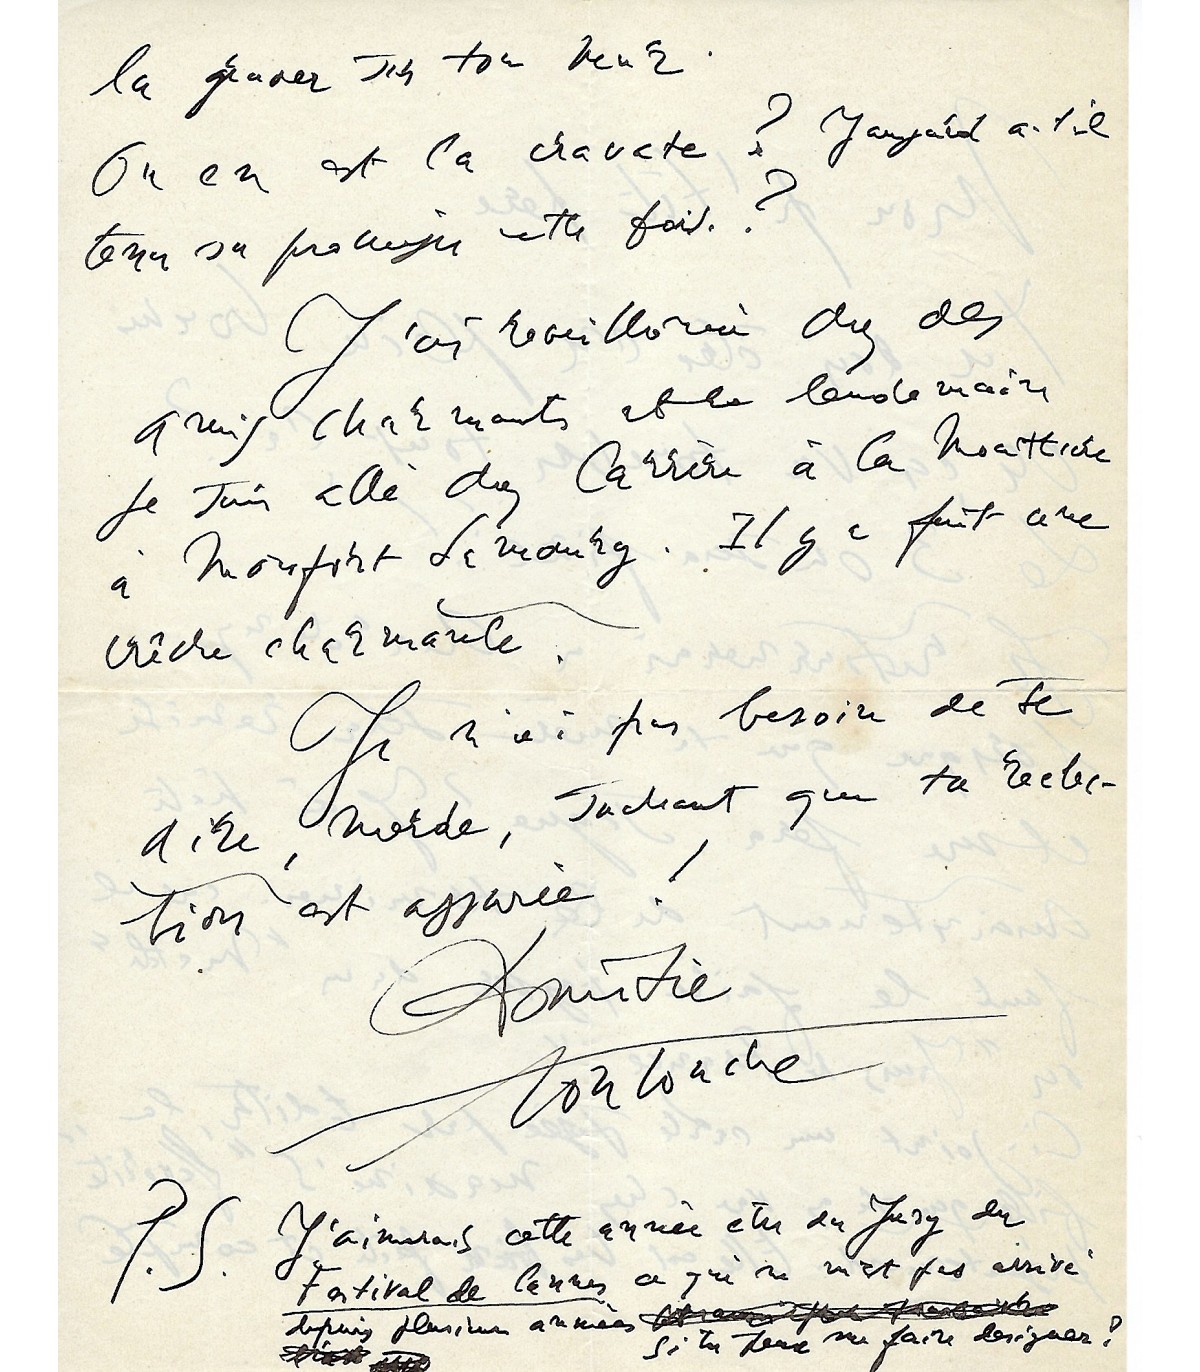 la graver sur ton
Où en est la cravate ? Jaujard a-t-il
tenu sa promesse cette fois. ?
J'ai réveillonné chez des
amis charmants et le lendemain
je suis allé chez Carrère à la Moutière
à Monfort Lamoury. Il y a fait une
crèche charmante.
Je n'ai pas besoin de te
dire, merde, sachant que ta réélec-
tion est assurée !
Amitié
Ton Touche
P.S. J'aimerais cette année être du Jury du
Festival de Cannes ce qui ne m'est pas arrivé
depuis plusieurs années
Si tu peux me faire designer ?